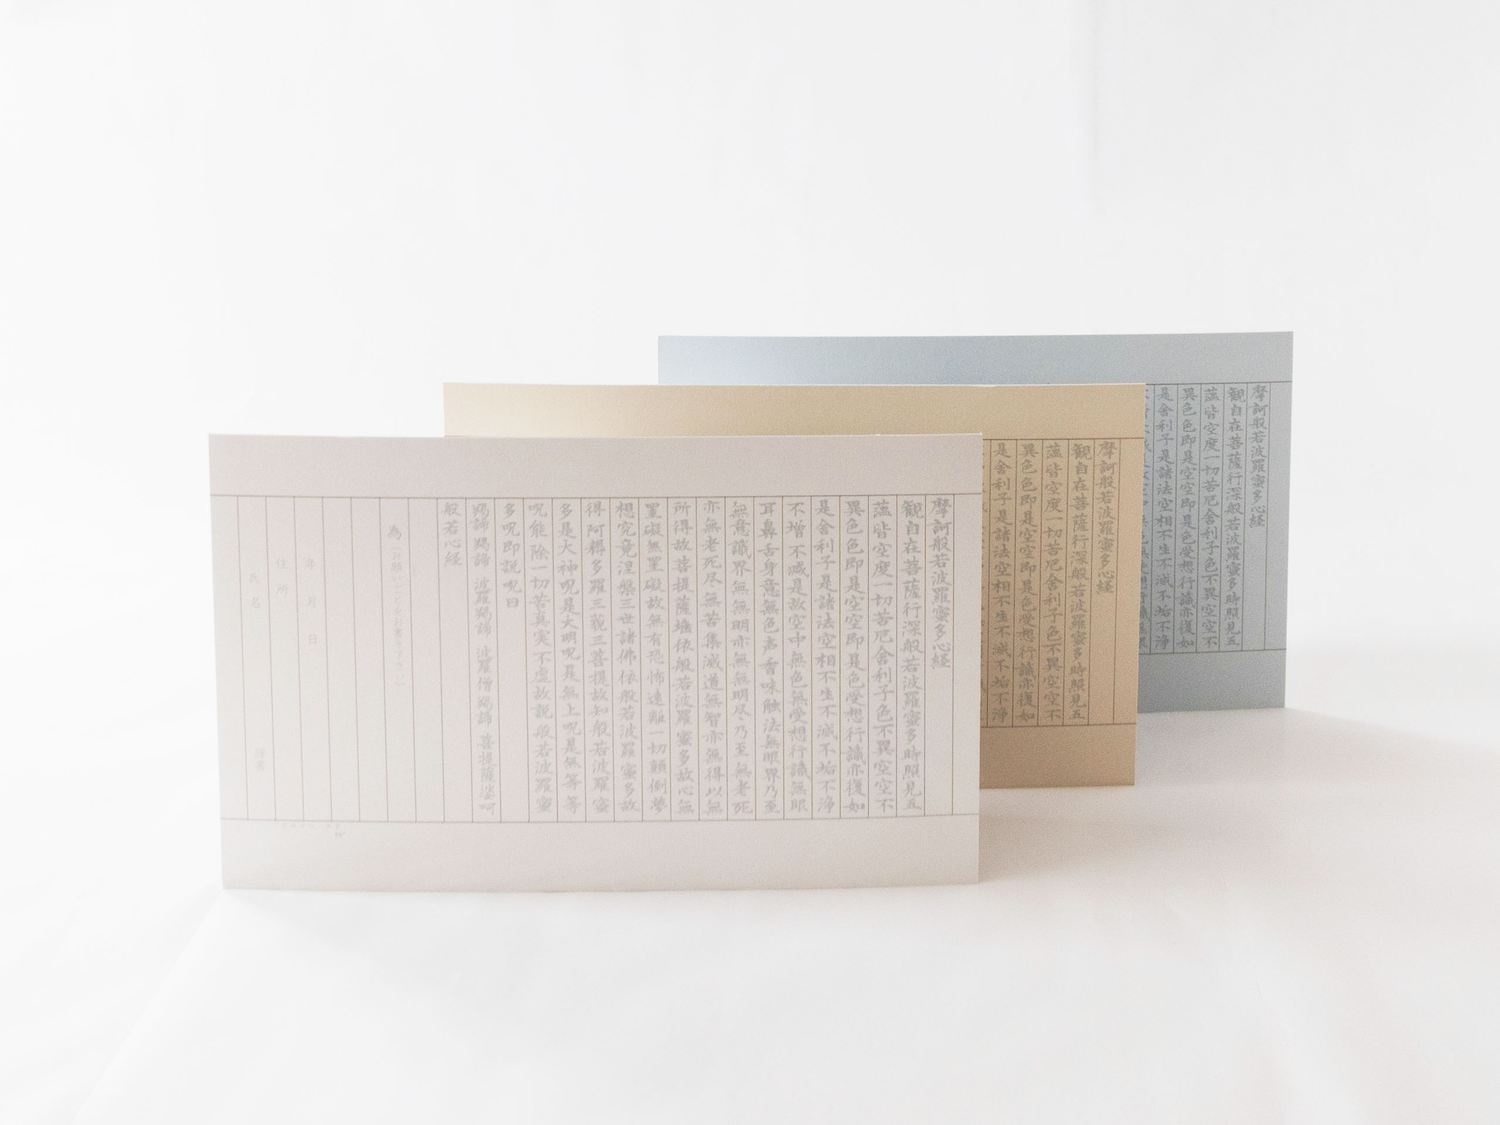 摩訶般若波羅蜜多心経
観自在菩薩行深般若波羅蜜多時照見五
蘊皆空度一切苦厄舎利子色不異空空不
異色色即是空空即是色受想行識亦復如
是舎利子是諸法空相不生不滅不垢不浄
不増不減是故空中無色無受想行識無眼
耳鼻舌身意無色声香味触法無眼界乃至
無意識界無無明亦無無明尽乃至無老死
亦無老死尽無苦集滅道無智亦無得以無
所得故菩提薩埵依般若波羅蜜多故心無
罣礙無罣礙故無有恐怖遠離一切顛倒夢
想究竟涅槃三世諸佛依般若波羅蜜多故
得阿耨多羅三藐三菩提故知般若波羅蜜
多是大神呪是大明呪是無上呪是無等等
呪能除一切苦真実不虚故説般若波羅蜜
多呪即説呪曰
羯諦 羯諦 波羅羯諦 波羅僧羯諦 菩提薩婆訶
般若心経
為
年 月 日
住所
氏名 謹書
摩訶般若波羅蜜多心経
観自在菩薩行深般若波羅蜜多時照見五
蘊皆空度一切苦厄舎利子色不異空空不
異色色即是空空即是色受想行識亦復如
是舎利子是諸法空相不生不滅不垢不浄
摩訶般若波羅蜜多心経
観自在菩薩行深般若波羅蜜多時照見五
蘊皆空度一切苦厄舎利子色不異空空不
異色色即是空空即是色受想行識亦復如
是舎利子是諸法空相不生不滅不垢不浄